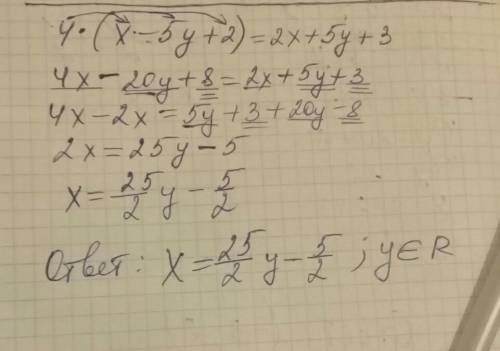 4·(x-5y+2)=2x+5y+3
4x-20y+8=2x+5y+3
4x-2x=5y+3+20y-8
2x=25y-5
x=25/2 y-5/2
Ответ: x=25/2 y-5/2; y∈R